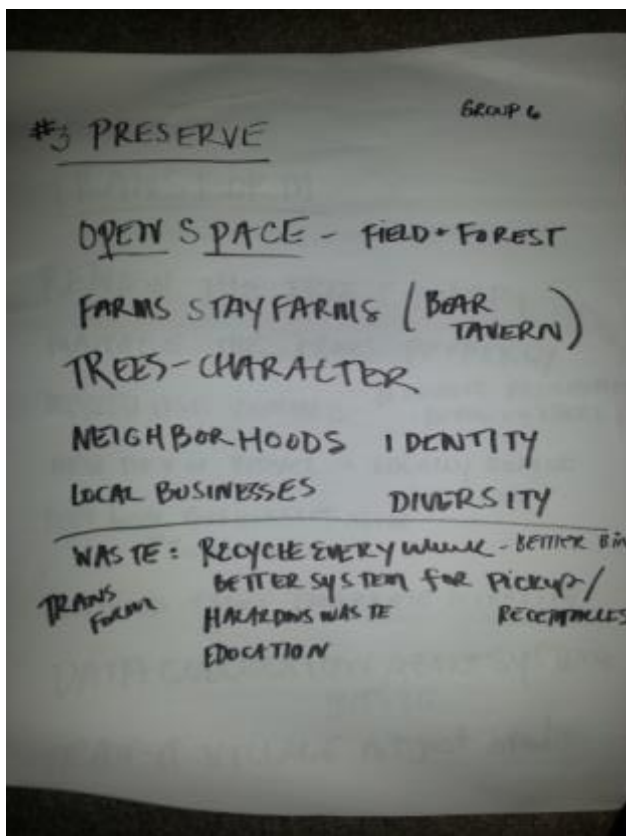 GROUP 6
#3 PRESERVE
OPEN SPACE - FIELD + FOREST
FARMS STAY FARMS (BEAR
TAVERN)
TREES - CHARACTER
NEIGHBORHOODS IDENTITY
LOCAL BUSINESSES DIVERSITY
WASTE: RECYCLE EVERYWHERE - BETTER BIN
TRANS
FORM
BETTER SYSTEM FOR PICKUP/
HAZARDOUS WASTE RECEPTACLES
EDOCATION